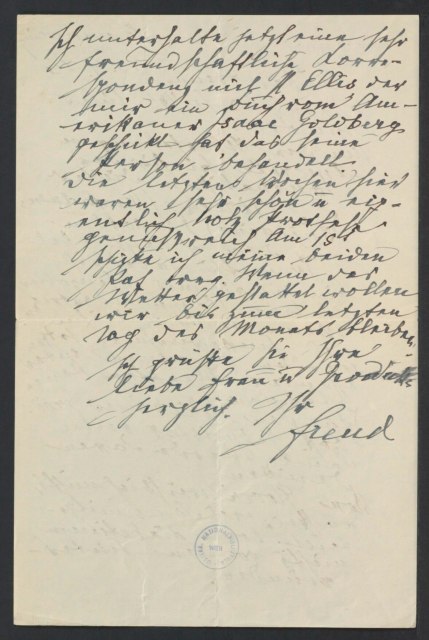 Ich unterhalte jetzt eine sehr
freundschaftliche Corre-
spondenz mit H Ellis der
mir ein Buch vom Am-
erikaner Isaac Goldberg
geschickt hat das seine
Person behandelt
Die letzten Wochen hier
waren sehr schön u eig-
entlich trotz
genußreich Am 1st
ich meine beiden
Pat weg. Wenn das
Wetter gestattet wollen
wir bis zum letzten
Tag des Monats bleiben.
Ich grüße Sie Ihre
liebe Frau u
herzlich. Ihr
Freud